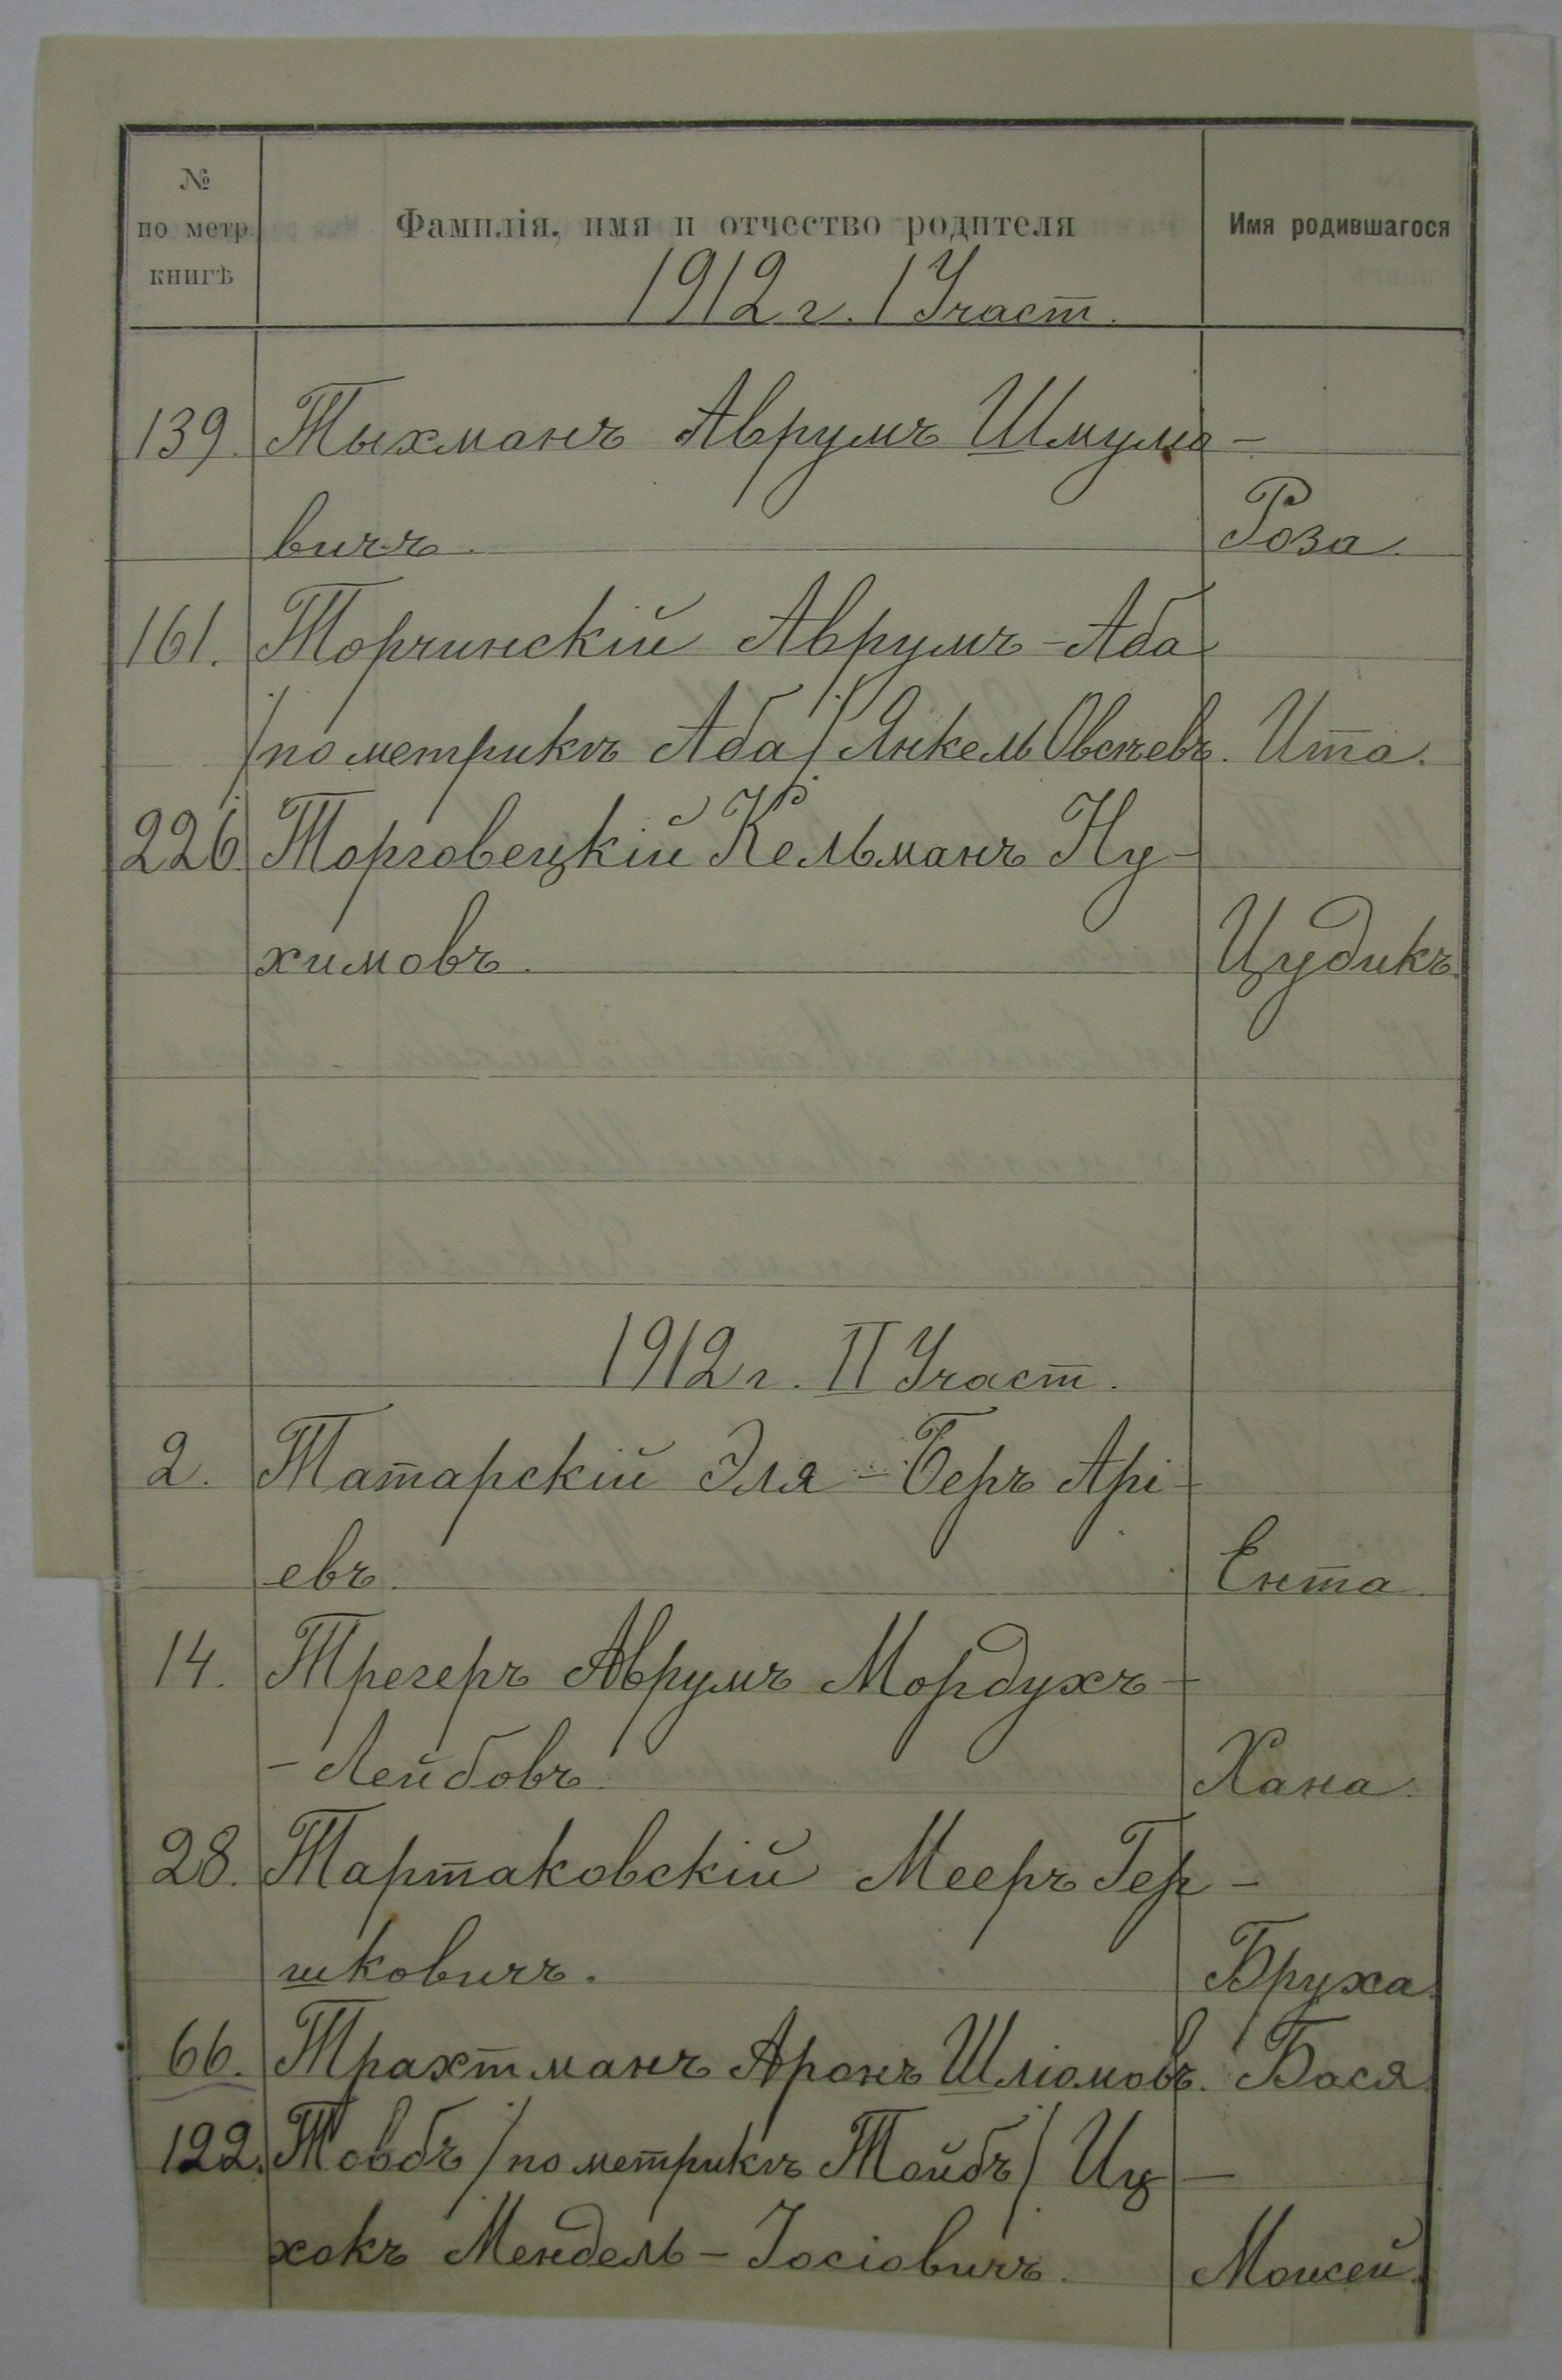 № по метр. книгѣ
Фамилія, имя и отчество родителя
Имя родившагося
1912 г. I Участ.
139. Тыхманъ Аврумъ Шмуло-
вичъ. Роза.
161. Торчинскій Аврумъ-Аба
/по метрикѣ Аба/ Янкель Овсѣевъ. Ита.
226. Торговецкій Кельманъ Ну-
химовъ. Цудикъ.
1912 г. II Участ.
2. Татарскій Эля-Беръ Арі-
евъ. Ента.
14. Трегеръ Аврумъ Мордухъ-
-Лейбовъ. Хана.
28. Тартаковскій Мееръ Гер-
шковичъ. Бруха.
66. Трахтманъ Аронъ Шліомовъ. Бася.
122. Товбъ /по метрикѣ Тойбъ/ Иц-
хокъ Мендель-Іосіовичъ. Моисей.